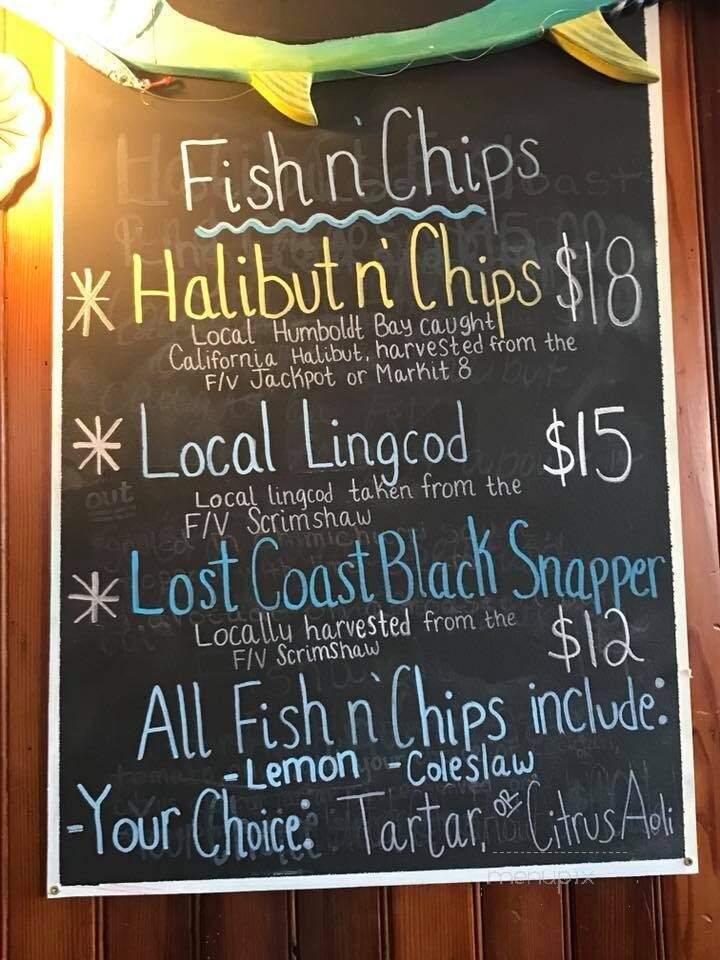 Fish n' Chips
* Halibut n' Chips $18
Local Humboldt Bay caught
California Halibut, harvested from the
F/V Jackpot or Markit 8
* Local Lingcod $15
Local lingcod taken from the
F/V Scrimshaw
* Lost Coast Black Snapper
Locally harvested from the $12
F/V Scrimshaw
All Fish n' Chips include:
-Lemon -Coleslaw
-Your Choice: Tartar, or Citrus Aoli
menupix